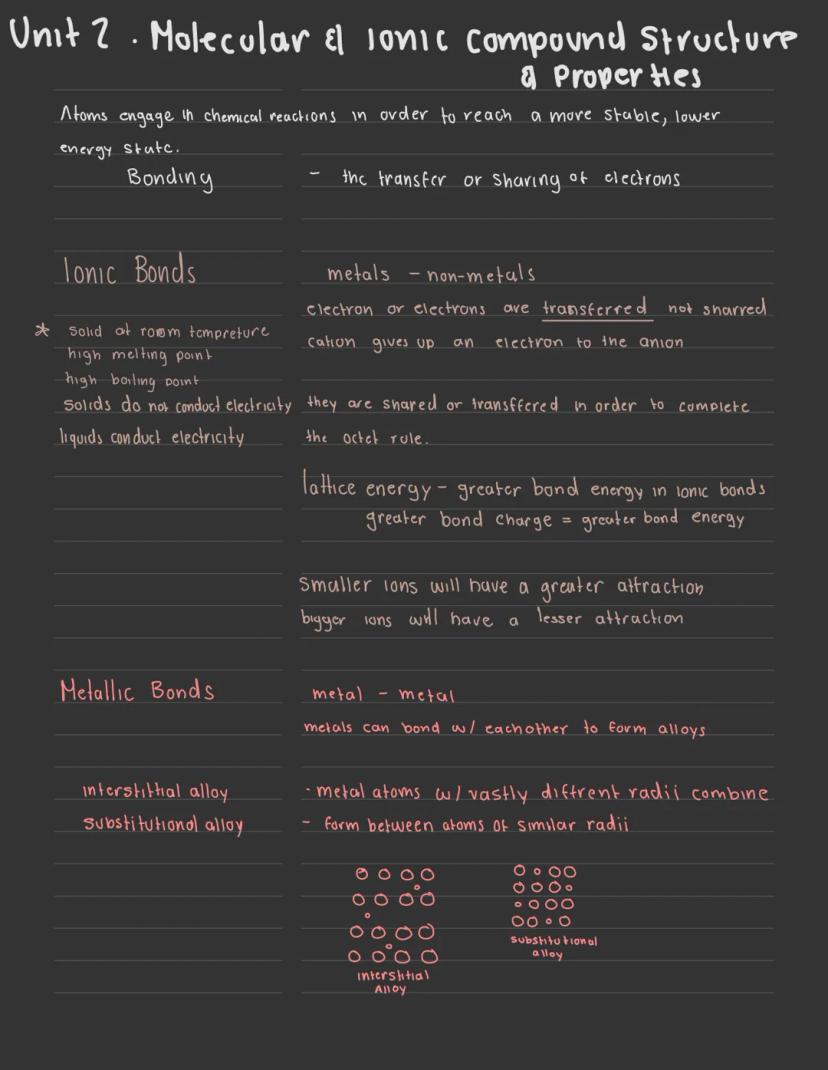 Unit 2. Molecular & Ionic Compound Structure
& Properties
Atoms engage in chemical reactions in order to reach a more stable, lower
energy state.
Bonding - the transfer or sharing of electrons
Ionic Bonds metals - non-metals
electron or electrons are transferred not sharred
* solid at room tempreture
cation gives up an electron to the anion
high melting point
high boiling point
solids do not conduct electricity they are shared or transffered in order to complete
liquids conduct electricity the octet rule.
lattice energy - greater bond energy in ionic bonds
greater bond charge = greater bond energy
Smaller ions will have a greater attraction
bigger ions will have a lesser attraction
Metallic Bonds metal - metal
metals can bond w/ eachother to form alloys
interstithal alloy - metal atoms w/ vastly diffrent radii combine
substitutional alloy - form between atoms of similar radii
substitutional
alloy
interstitial
Alloy